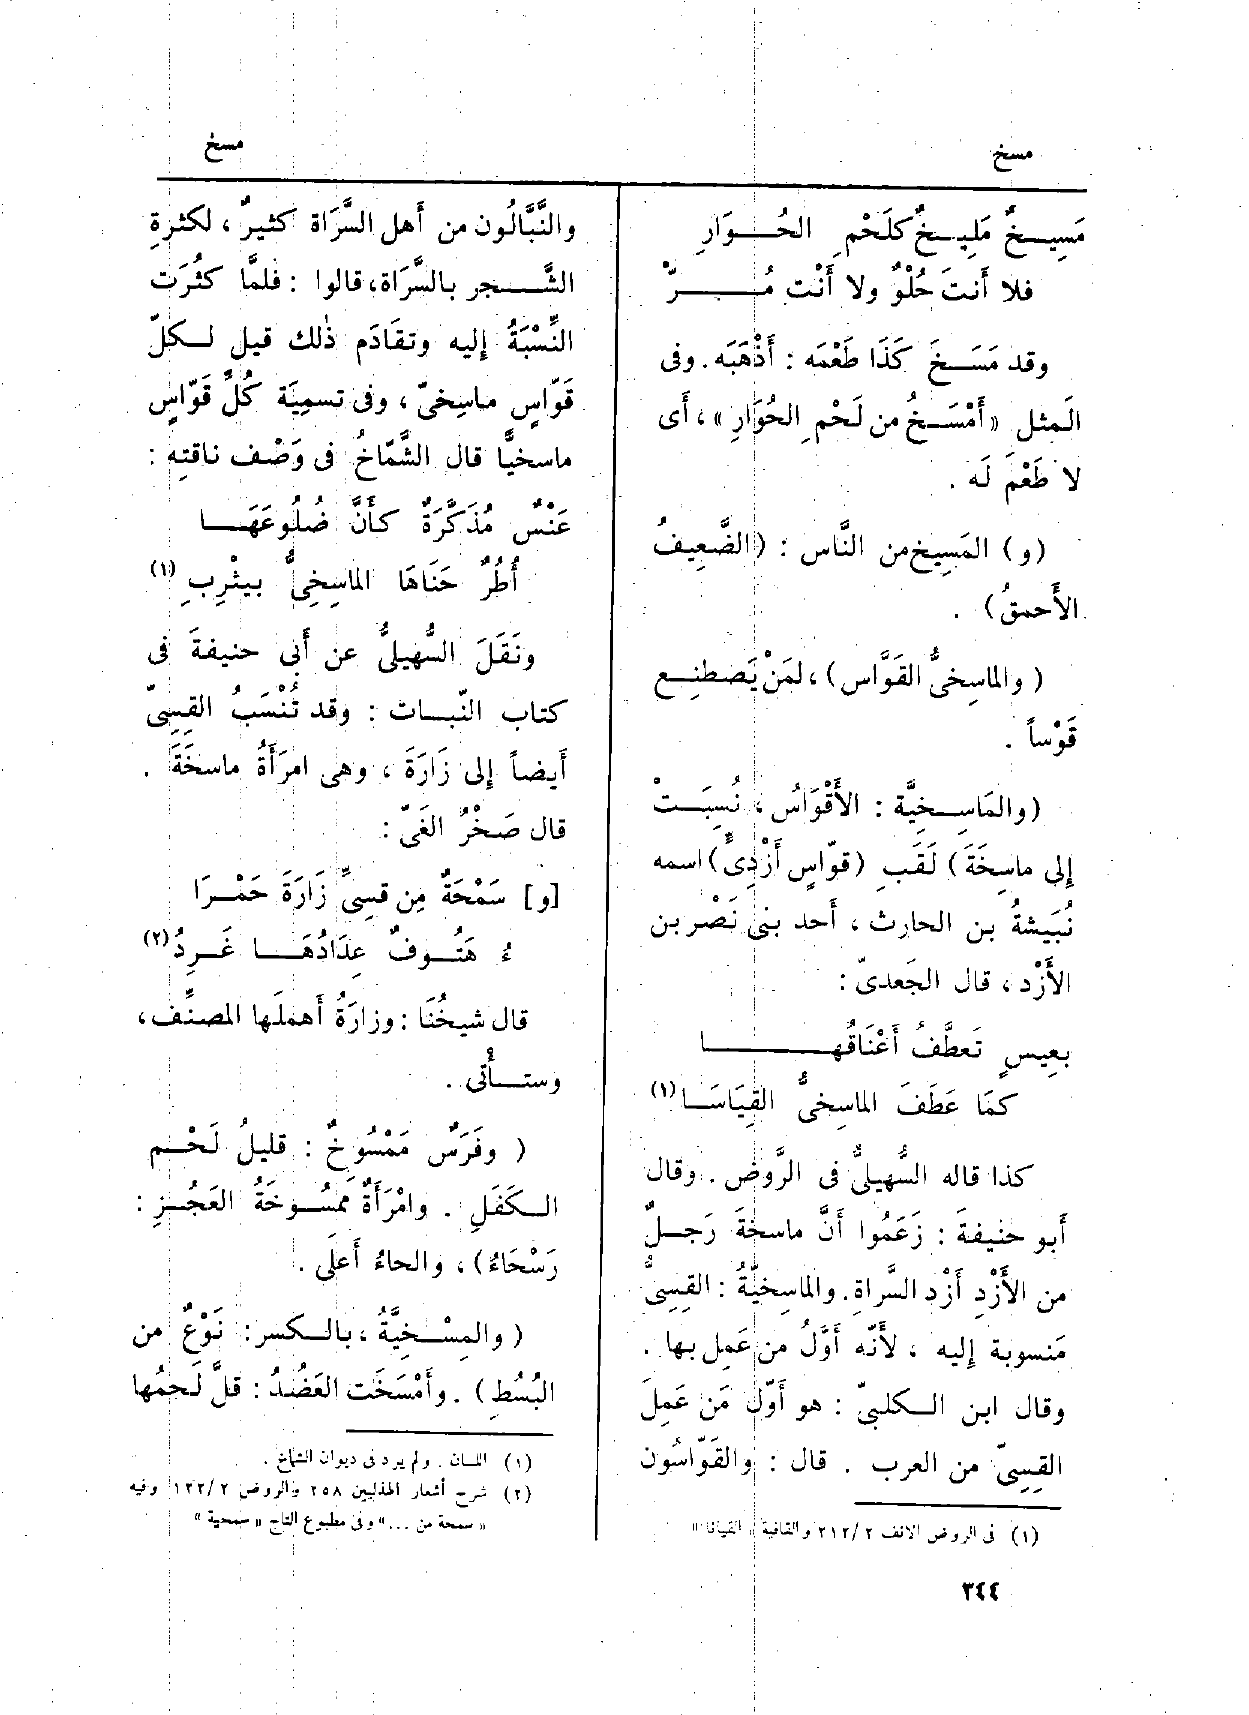 مسخ
مسخ
مَسِيــخٌ مَلِيــخٌ كلَحْمِ الحُــوَارِ
فلا أَنتَ حُلْوٌ ولا أَنْت مُــرّْ
وقد مَسَــخَ كَذَا طَعْمَه : أَذْهَبَه . وفى
الَمثل «أَمْسَــخُ من لَحْمِ الحُوَارِ» ، أَى
لا طَعْمَ لَه .
(و) المَسِيخ من النَّاس : (الضَّعِيفُ
الأَحمقُ) .
( والماسِخىُّ القَوَّاس) ، لمَنْ يَصْطنِــع
قَوْساً .
(والمَاسِــخِيَّة : الأَقْوَاسُ ، نُسِبَــتْ
إلى ماسِخَةَ) لَقَبِ (قوّاسٍ أَزْدِىٌّ) اسمه
نُبَيشةُ بن الحارث ، أَحد بنى نَصْر بن
الأَزْد ، قال الجَعدىّ :
بعِيسٍ تَعطَّفُ أَعْنَاقُهــا
كمَا عَطَفَ الماسِخىُّ القِيَاسَــا (١)
كذا قاله السُّهيلىُّ فى الرَّوض . وقال
أَبو حنيفةَ : زَعَمُوا أَنَّ ماسخةَ رَجــلٌ
من الأَزْدِ أَزْد السَّراةِ . والماسِخيّةُ : القِسِىُّ
مَنسوبة إليه ، لأَنّه أَوّلُ من عَمِل بها .
وقال ابن الــكلبىّ : هو أَوّل مَن عَمِلَ
القِسِىّ من العرب . قال : والقَوّاسُون
(١) فى الروض الانف ٢١٢/٢ والقافية «القيانا»
والنَّبَّالُون من أَهل السَّرَاة كثيرٌ ، لكثرةِ
الشَّــجر بالسَّرَاة، قالوا : فلمَّا كثُرَت
النِّسْبَةُ إليه وتقَادَم ذٰلك قيل لــكلّ
قَوّاسٍ ماسِخىّ ، وفى تسمِيَة كُلِّ قَوّاسٍ
ماسخيًّا قال الشَّمّاخُ فى وَصْف ناقتِه :
عَنْسٌ مُذَكَّرَةٌ كأَنَّ ضُلُوعَهَــا
أُطُرٌ حَنَاهَا الماسِخِىُّ بيثْرِبِ (١)
ونَقَلَ السُّهيلىُّ عن أَبى حنيفةَ فى
كتاب النّبــات : وقد تُنْسَبُ القِسِىّ
أَيضاً إلى زَارَةَ ، وهى امرَأَةُ ماسخَةَ .
قال صَخْرُ الغَىّ :
[و] سَمْحَةٌ مِن قسِىِّ زَارَةَ حَمْــرَا
ءُ هَتُــوفٌ عِدَادُهَــا غَــرِدُ (٢)
قال شيخُنَا : وزارَةُ أَهملَها المصنِّف ،
وستــأْتى .
( وفَرَسٌ مَمْسُوخٌ : قليلُ لَحْــم
الــكَفَلِ . وامْرَأَةٌ مَمسُــوخَةُ العَجُــزِ :
رَسْحَاءُ) ، والحاءُ أَعلَى .
( والمِسْــخيَّةُ ، بالــكسر : نَوْعٌ من
البُسُطِ) . وأَمْسَخَت العَضُدُ : قلَّ لَحمُها
(١) اللسان . ولم يرد فى ديوان الشماخ .
(٢) شرح أشعار الهذليين ٢٥٨ والروض ١٣٢/٢ وفيه
«سمحة من ...» وفى مطبوع التاج «سمحية»
٣٤٤